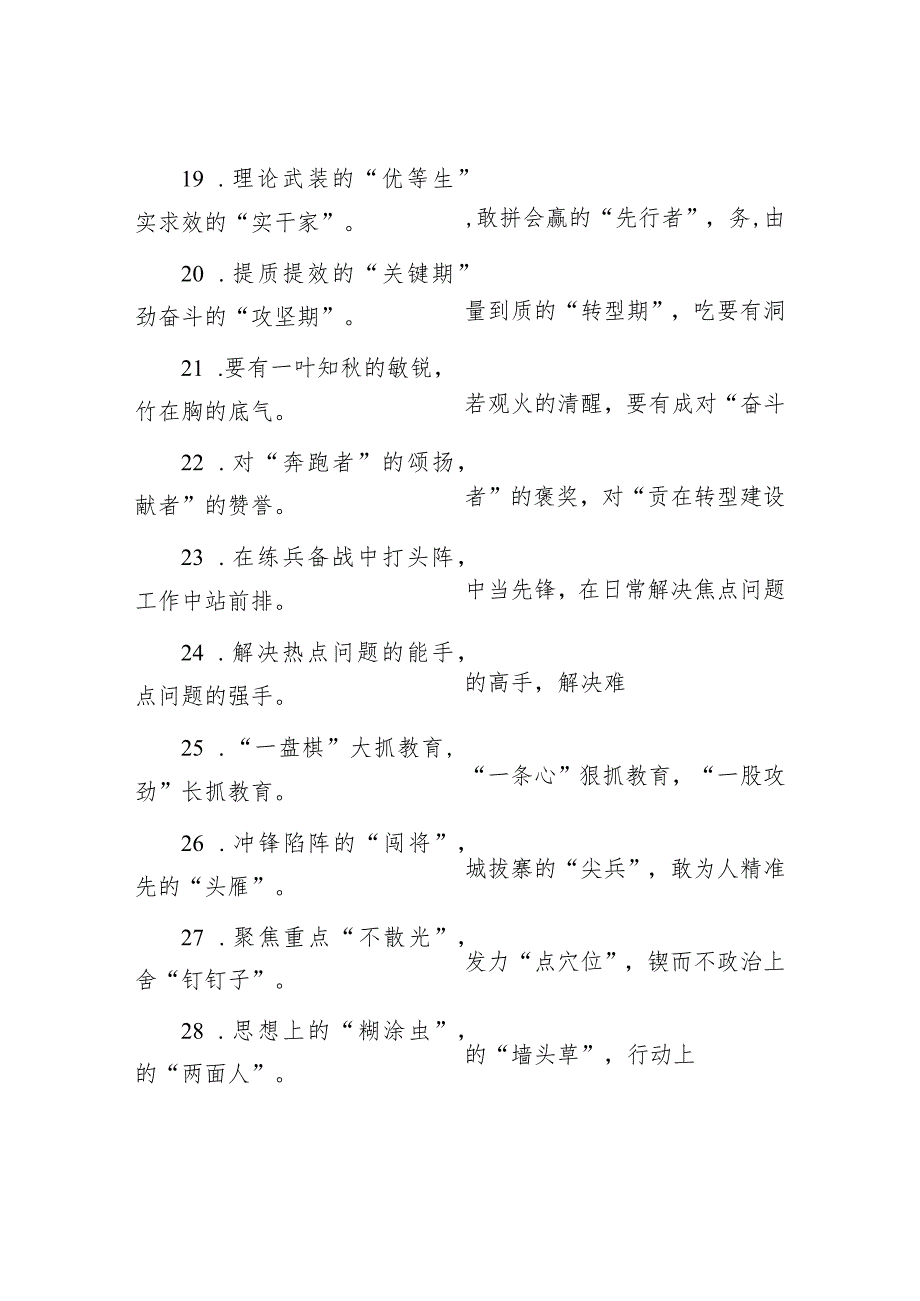 19 .理论武装的“优等生”
,敢拼会赢的“先行者”，务,由
实求效的“实干家”。
20 .提质提效的“关键期”
量到质的“转型期”，吃要有洞
劲奋斗的“攻坚期”。
21 .要有一叶知秋的敏锐，
若观火的清醒，要有成对“奋斗
竹在胸的底气。
22 .对“奔跑者”的颂扬，
者”的褒奖，对“贡在转型建设
献者”的赞誉。
23 .在练兵备战中打头阵，
中当先锋，在日常解决焦点问题
工作中站前排。
24 .解决热点问题的能手，
的高手，解决难
点问题的强手。
25 .“一盘棋”大抓教育，
“一条心”狠抓教育，“一股攻
劲”长抓教育。
26 .冲锋陷阵的“闯将”，
城拔寨的“尖兵”，敢为人精准
先的“头雁”。
27 .聚焦重点“不散光”，
发力“点穴位”，锲而不政治上
舍“钉钉子”。
28 .思想上的“糊涂虫”，
的“墙头草”，行动上
的“两面人”。